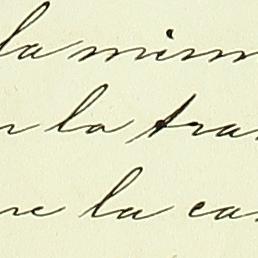 la mism
r la tra
re la ca